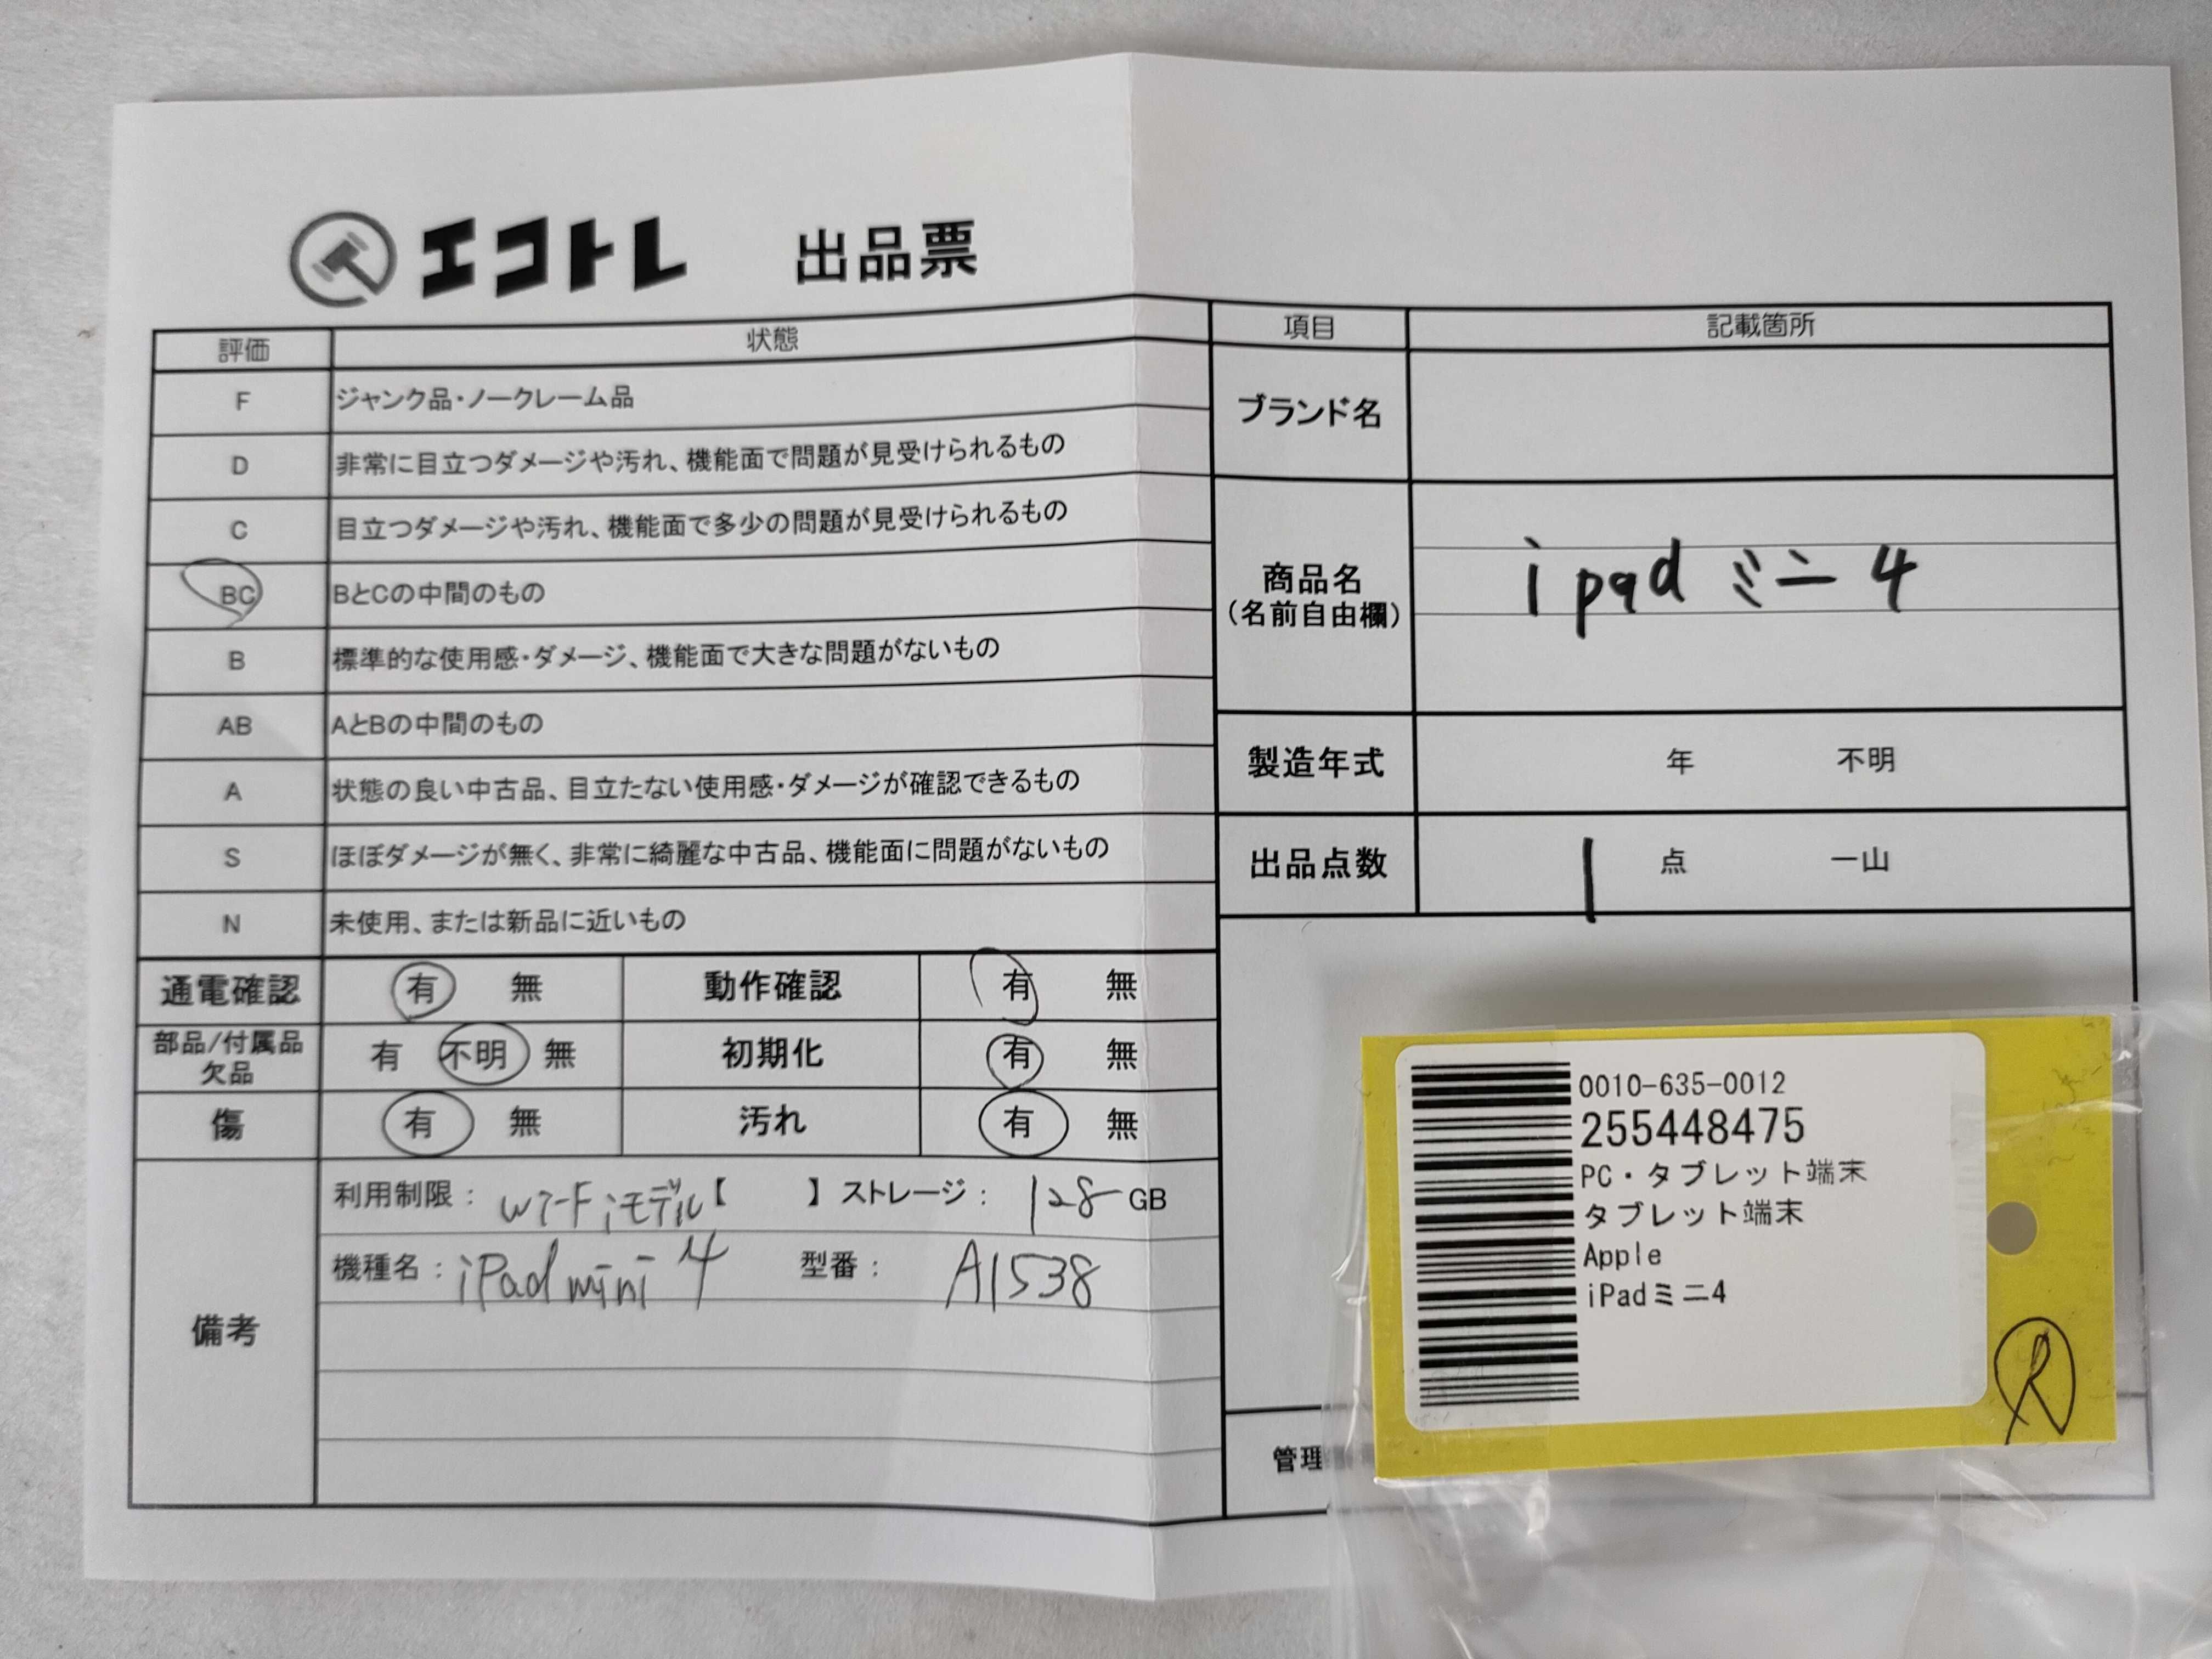 エコトレ 出品票
評価 状態
F ジャンク品・ノークレーム品
D 非常に目立つダメージや汚れ、機能面で問題が見受けられるもの
C 目立つダメージや汚れ、機能面で多少の問題が見受けられるもの
BC BとCの中間のもの
B 標準的な使用感・ダメージ、機能面で大きな問題がないもの
AB AとBの中間のもの
A 状態の良い中古品、目立たない使用感・ダメージが確認できるもの
S ほぼダメージが無く、非常に綺麗な中古品、機能面に問題がないもの
N 未使用、または新品に近いもの
通電確認 有 無 動作確認 有 無
部品/付属品
欠品 有 不明 無 初期化 有 無
傷 有 無 汚れ 有 無
備考
利用制限： Wi-Fiモデル【 】 ストレージ： 128 GB
機種名： iPad mini 4 型番： A1538
項目 記載箇所
ブランド名
商品名
（名前自由欄） ipad ミニ 4
製造年式 年 不明
出品点数 1 点 一山
管理
0010-635-0012
255448475
PC・タブレット端末
タブレット端末
Apple
iPadミニ4
R